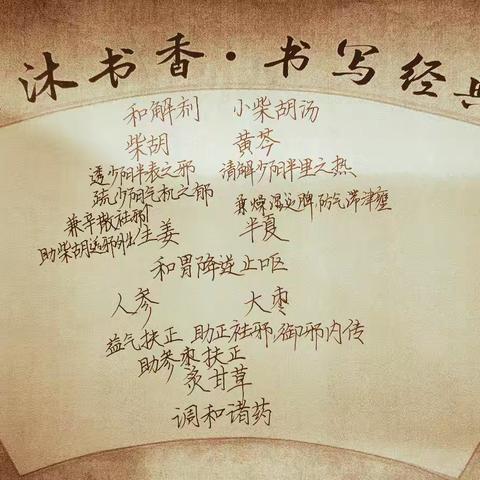 沐书香·书写经典
和解剂 小柴胡汤
柴胡 黄芩
透少阳半表之邪 清解少阳半里之热
疏少阳气机之郁
兼燥湿运脾防气滞津壅
兼辛散祛邪
助柴胡透邪外出 生姜 半夏
和胃降逆止呕
人参 大枣
益气扶正 助正祛邪,御邪内传
助参枣扶正
炙甘草
调和诸药